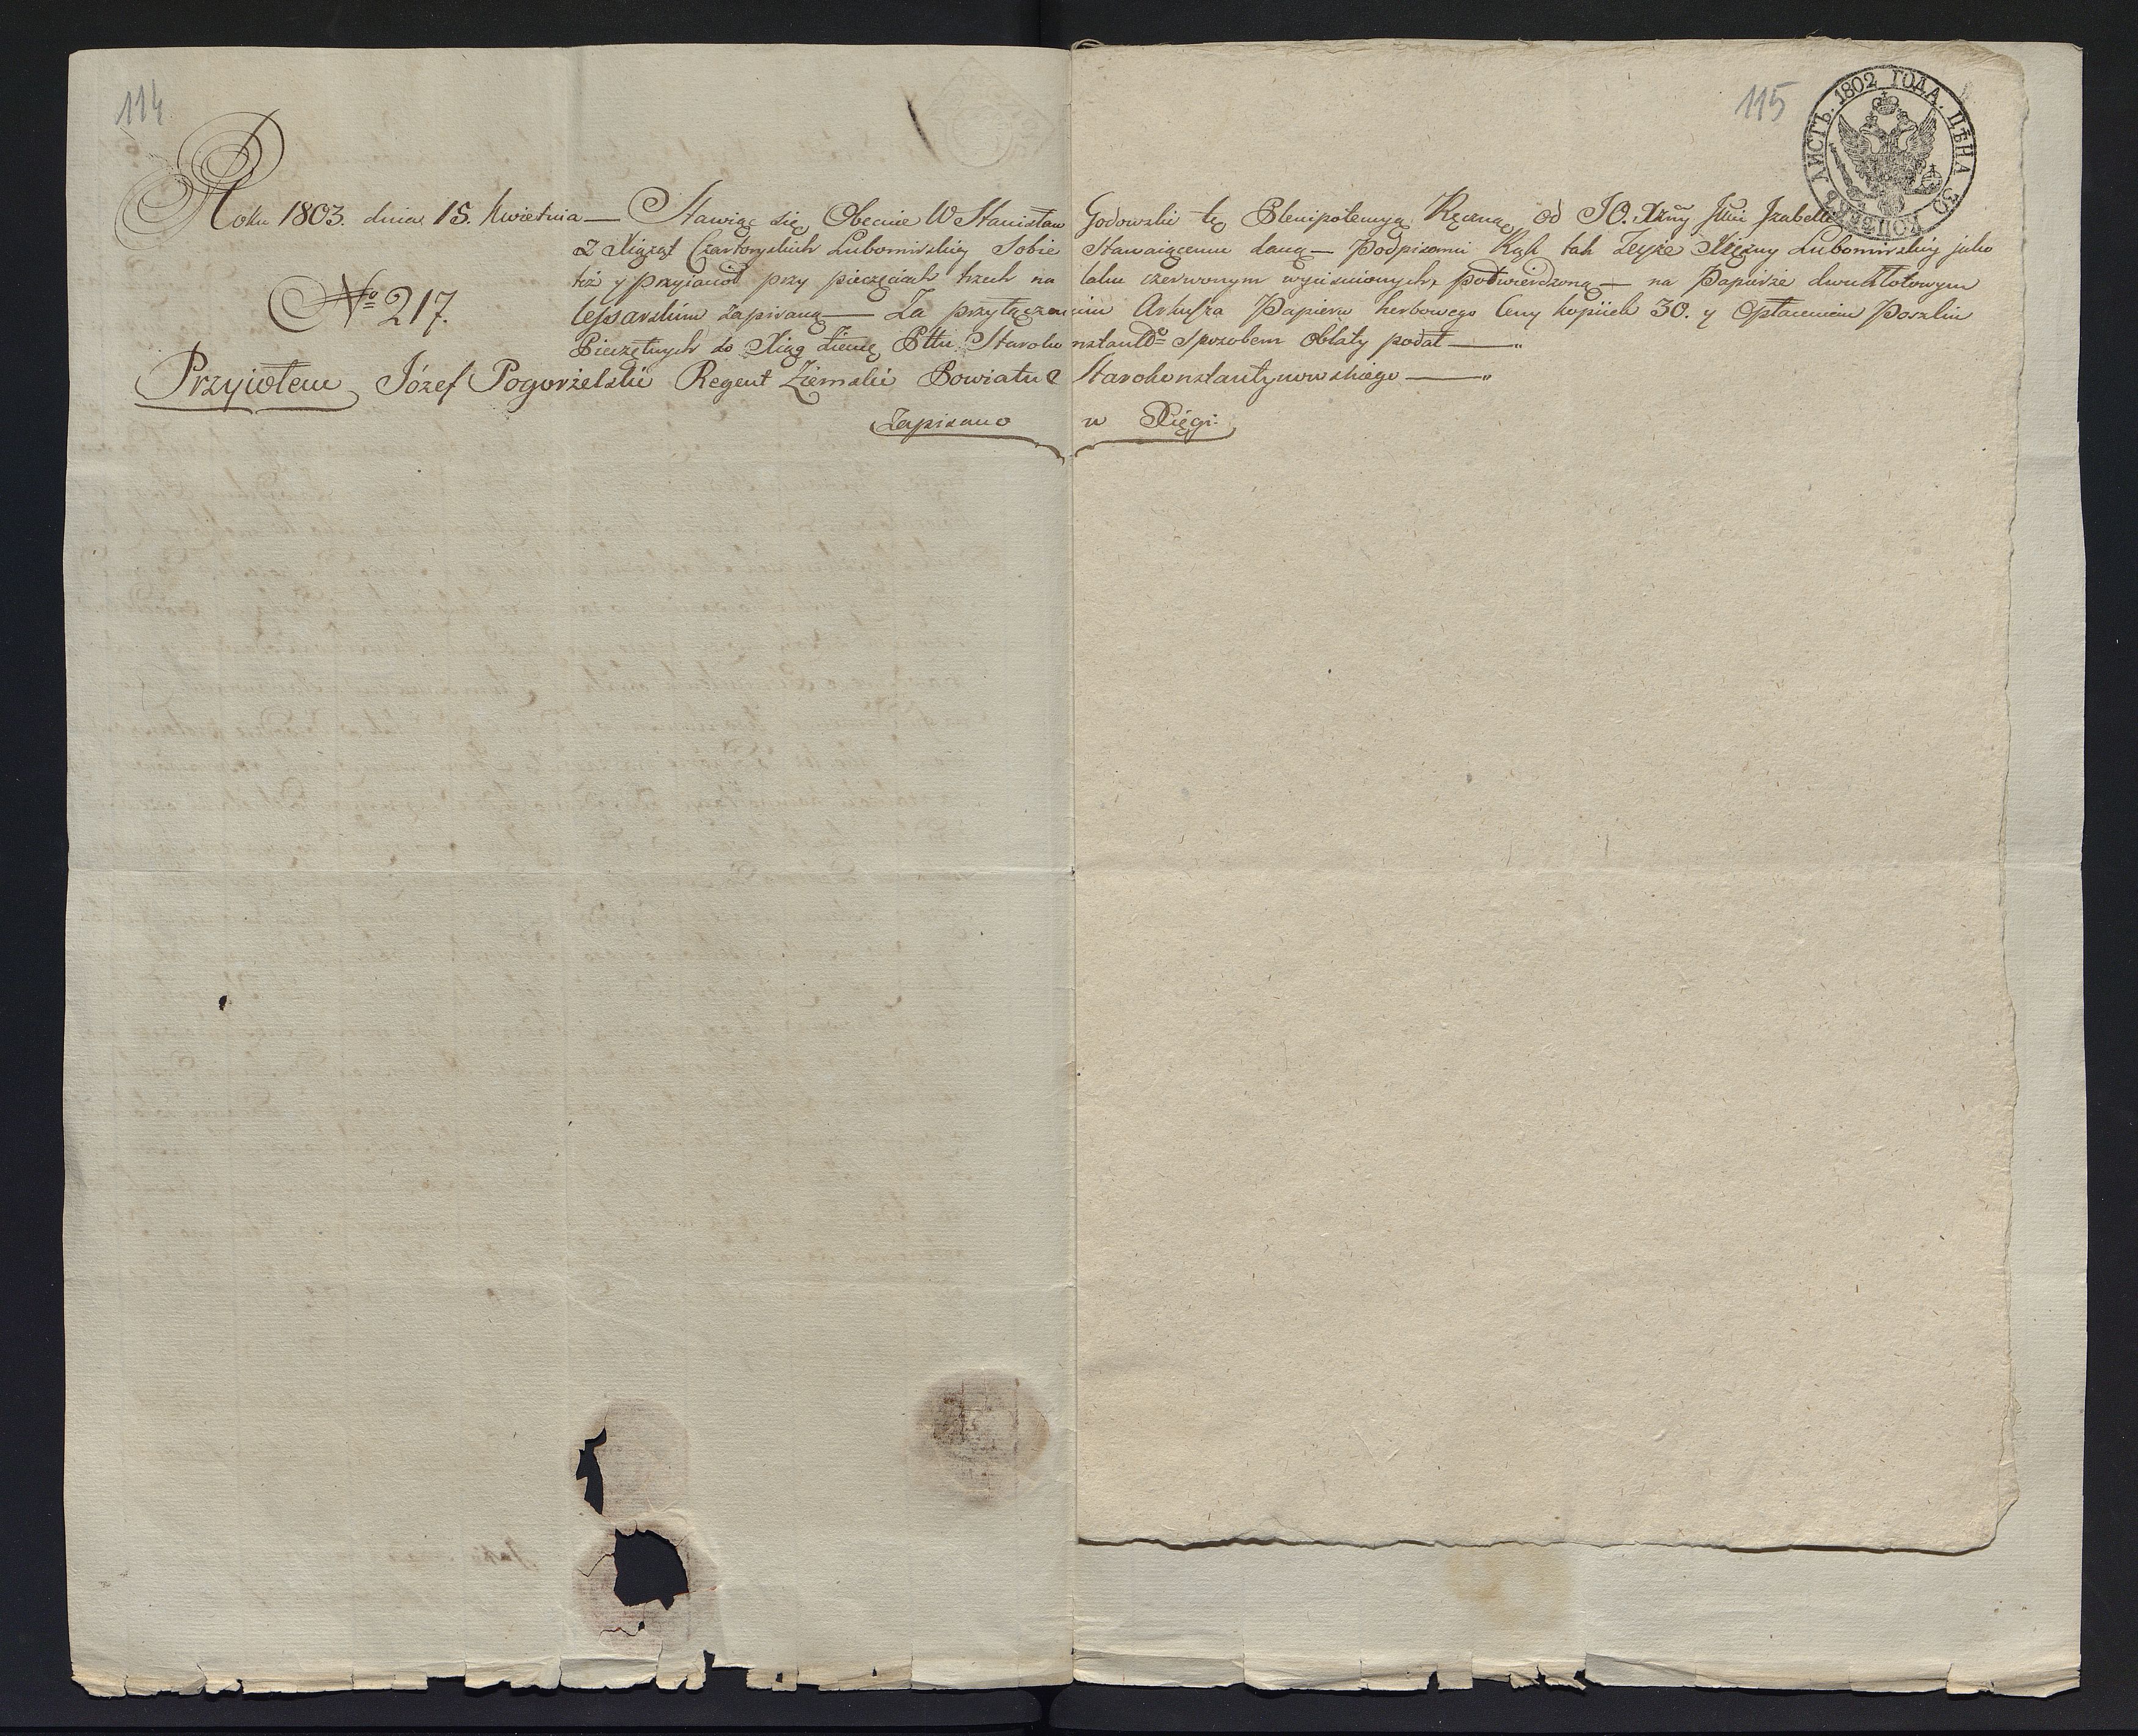 114
115
ЛИСТЪ. 1802 ГОДА. ЦѢНА 30 КОПѢЕКЪ
Roku 1803. dnia 15. Kwietnia — Stawiąc się Obecnie W Stanisław Godowski tę Plenipotencyą Ręczną od JO. Xżny Jmci Izabelli
z Xiążąt Czartoryskich Lubomirskiey Sobie Stawaiącemu daną — Podpisami Rąk tak Teyże Xiężny Lubomirskiey jako
też y Przyiaciół przy pieczęciach trzech na laku czerwonym wyciśnionych, potwierdzoną — na Papierze dwuzłotowym
No 217.
Cessarskim zapisaną — Za przyłączeniem Arkusza Papieru herbowego Ceny kopiiek 30. y Opłaceniem Poszlin
Pieczętnych do Xiąg Ziem Pttu Starokonstant: Sposobem Oblaty podał — „
Przyiołem Józef Pogorzelski Regent Ziemski Powiatu Starokonstantynowskiego — „
Zapisano w Xięgi